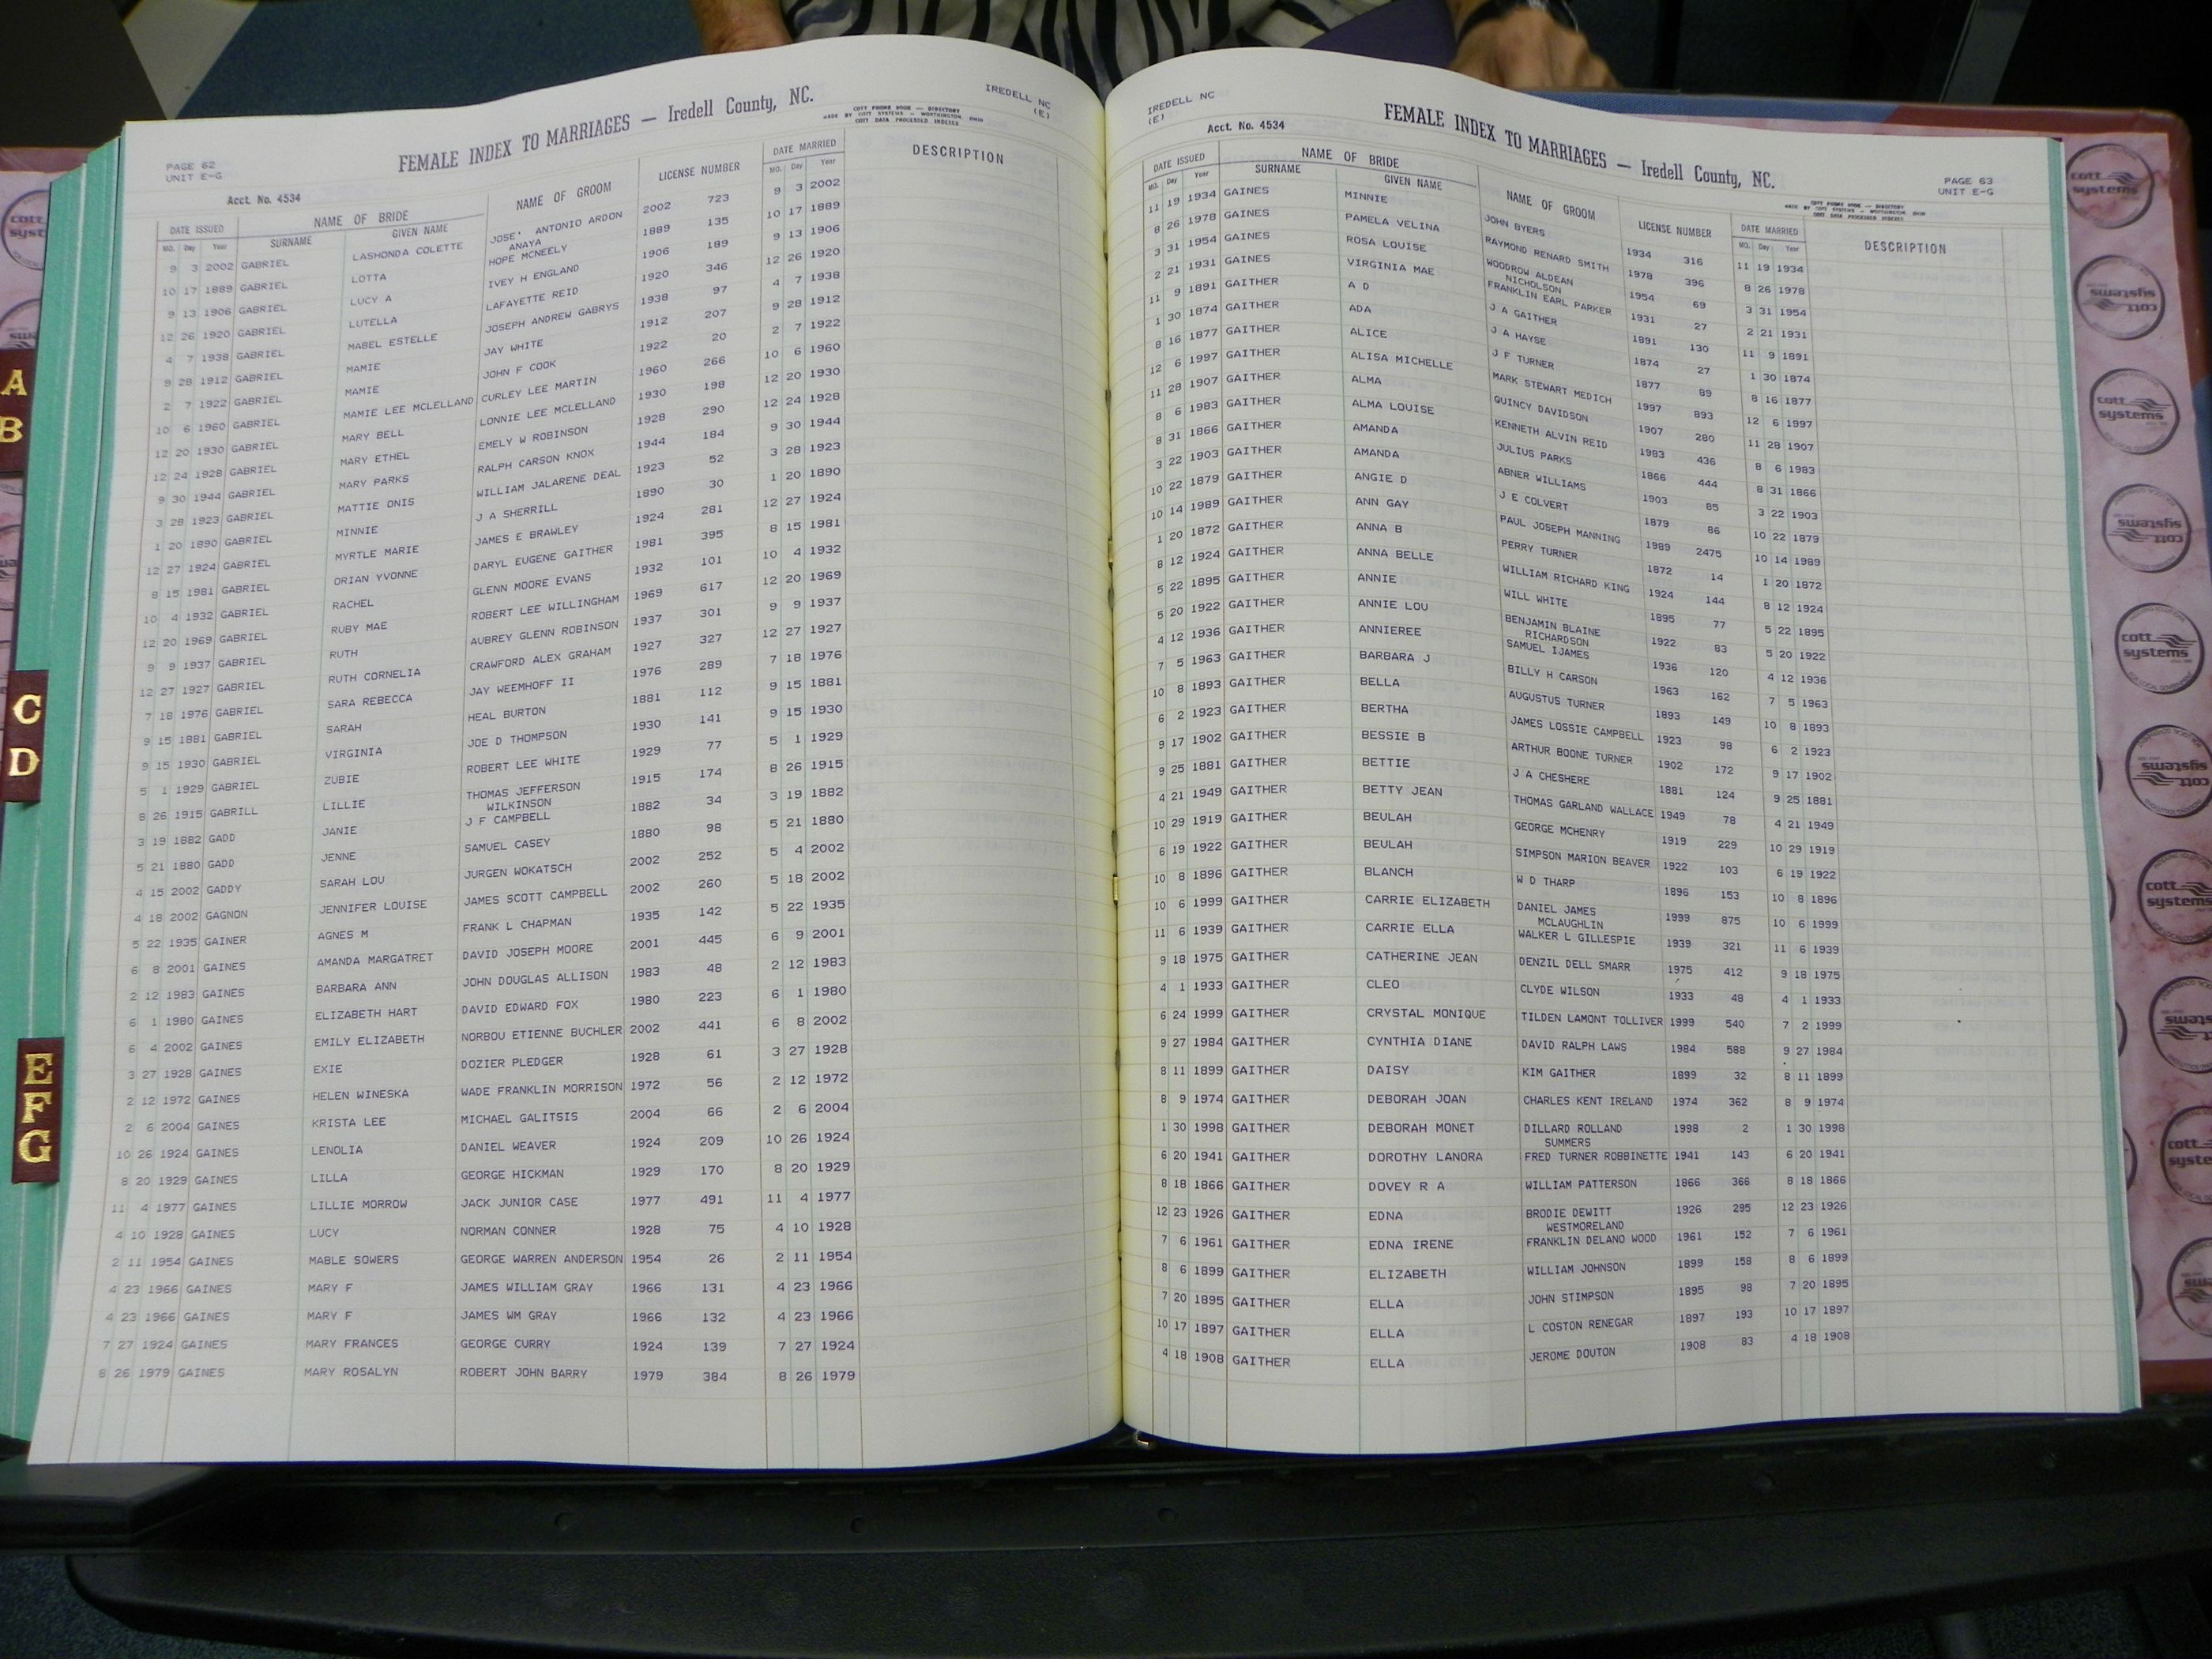 PAGE 62
UNIT E-G
Acct. No. 4534
FEMALE INDEX TO MARRIAGES — Iredell County, NC.
MADE BY COTT SYSTEMS — WORTHINGTON, OHIO
COTT DATA PROCESSED INDEXES
IREDELL NC
(E)
DATE ISSUED NAME OF BRIDE NAME OF GROOM LICENSE NUMBER DATE MARRIED DESCRIPTION
MO. Day Year SURNAME GIVEN NAME MO. Day Year
9 3 2002 GABRIEL LASHONDA COLETTE JOSE' ANTONIO ARDON 2002 723 9 3 2002
ANAYA
10 17 1889 GABRIEL LOTTA HOPE MCNEELY 1889 135 10 17 1889
9 13 1906 GABRIEL LUCY A IVEY H ENGLAND 1906 189 9 13 1906
12 26 1920 GABRIEL LUTELLA LAFAYETTE REID 1920 346 12 26 1920
4 7 1938 GABRIEL MABEL ESTELLE JOSEPH ANDREW GABRYS 1938 97 4 7 1938
9 28 1912 GABRIEL MAMIE JAY WHITE 1912 207 9 28 1912
2 7 1922 GABRIEL MAMIE JOHN F COOK 1922 20 2 7 1922
10 6 1960 GABRIEL MAMIE LEE MCLELLAND CURLEY LEE MARTIN 1960 266 10 6 1960
12 20 1930 GABRIEL MARY BELL LONNIE LEE MCLELLAND 1930 198 12 20 1930
12 24 1928 GABRIEL MARY ETHEL EMELY W ROBINSON 1928 290 12 24 1928
9 30 1944 GABRIEL MARY PARKS RALPH CARSON KNOX 1944 184 9 30 1944
3 28 1923 GABRIEL MATTIE ONIS WILLIAM JALARENE DEAL 1923 52 3 28 1923
1 20 1890 GABRIEL MINNIE J A SHERRILL 1890 30 1 20 1890
12 27 1924 GABRIEL MYRTLE MARIE JAMES E BRAWLEY 1924 281 12 27 1924
8 15 1981 GABRIEL ORIAN YVONNE DARYL EUGENE GAITHER 1981 395 8 15 1981
10 4 1932 GABRIEL RACHEL GLENN MOORE EVANS 1932 101 10 4 1932
12 20 1969 GABRIEL RUBY MAE ROBERT LEE WILLINGHAM 1969 617 12 20 1969
9 9 1937 GABRIEL RUTH AUBREY GLENN ROBINSON 1937 301 9 9 1937
12 27 1927 GABRIEL RUTH CORNELIA CRAWFORD ALEX GRAHAM 1927 327 12 27 1927
7 18 1976 GABRIEL SARA REBECCA JAY WEEMHOFF II 1976 289 7 18 1976
9 15 1881 GABRIEL SARAH HEAL BURTON 1881 112 9 15 1881
9 15 1930 GABRIEL VIRGINIA JOE D THOMPSON 1930 141 9 15 1930
5 1 1929 GABRIEL ZUBIE ROBERT LEE WHITE 1929 77 5 1 1929
8 26 1915 GABRILL LILLIE THOMAS JEFFERSON 1915 174 8 26 1915
WILKINSON
3 19 1882 GADD JANIE J F CAMPBELL 1882 34 3 19 1882
5 21 1880 GADD JENNE SAMUEL CASEY 1880 98 5 21 1880
4 15 2002 GADDY SARAH LOU JURGEN WOKATSCH 2002 252 5 4 2002
4 18 2002 GAGNON JENNIFER LOUISE JAMES SCOTT CAMPBELL 2002 260 5 18 2002
5 22 1935 GAINER AGNES M FRANK L CHAPMAN 1935 142 5 22 1935
6 8 2001 GAINES AMANDA MARGATRET DAVID JOSEPH MOORE 2001 445 6 9 2001
2 12 1983 GAINES BARBARA ANN JOHN DOUGLAS ALLISON 1983 48 2 12 1983
6 1 1980 GAINES ELIZABETH HART DAVID EDWARD FOX 1980 223 6 1 1980
6 4 2002 GAINES EMILY ELIZABETH NORBOU ETIENNE BUCHLER 2002 441 6 8 2002
3 27 1928 GAINES EXIE DOZIER PLEDGER 1928 61 3 27 1928
2 12 1972 GAINES HELEN WINESKA WADE FRANKLIN MORRISON 1972 56 2 12 1972
2 6 2004 GAINES KRISTA LEE MICHAEL GALITSIS 2004 66 2 6 2004
10 26 1924 GAINES LENOLIA DANIEL WEAVER 1924 209 10 26 1924
8 20 1929 GAINES LILLA GEORGE HICKMAN 1929 170 8 20 1929
11 4 1977 GAINES LILLIE MORROW JACK JUNIOR CASE 1977 491 11 4 1977
4 10 1928 GAINES LUCY NORMAN CONNER 1928 75 4 10 1928
2 11 1954 GAINES MABLE SOWERS GEORGE WARREN ANDERSON 1954 26 2 11 1954
4 23 1966 GAINES MARY F JAMES WILLIAM GRAY 1966 131 4 23 1966
4 23 1966 GAINES MARY F JAMES WM GRAY 1966 132 4 23 1966
7 27 1924 GAINES MARY FRANCES GEORGE CURRY 1924 139 7 27 1924
8 26 1979 GAINES MARY ROSALYN ROBERT JOHN BARRY 1979 384 8 26 1979
IREDELL NC
(E)
Acct. No. 4534
FEMALE INDEX TO MARRIAGES — Iredell County, NC.
PAGE 63
UNIT E-G
DATE ISSUED NAME OF BRIDE NAME OF GROOM LICENSE NUMBER DATE MARRIED DESCRIPTION
MO. Day Year SURNAME GIVEN NAME MO. Day Year
11 19 1934 GAINES MINNIE JOHN BYERS 1934 316 11 19 1934
8 26 1978 GAINES PAMELA VELINA RAYMOND RENARD SMITH 1978 396 8 26 1978
3 31 1954 GAINES ROSA LOUISE WOODROW ALDEAN 1954 69 3 31 1954
NICHOLSON
2 21 1931 GAINES VIRGINIA MAE FRANKLIN EARL PARKER 1931 27 2 21 1931
11 9 1891 GAITHER A D J A GAITHER 1891 130 11 9 1891
1 30 1874 GAITHER ADA J A HAYSE 1874 27 1 30 1874
8 16 1877 GAITHER ALICE J F TURNER 1877 89 8 16 1877
12 6 1997 GAITHER ALISA MICHELLE MARK STEWART MEDICH 1997 893 12 6 1997
11 28 1907 GAITHER ALMA QUINCY DAVIDSON 1907 280 11 28 1907
8 6 1983 GAITHER ALMA LOUISE KENNETH ALVIN REID 1983 436 8 6 1983
8 31 1866 GAITHER AMANDA JULIUS PARKS 1866 444 8 31 1866
3 22 1903 GAITHER AMANDA ABNER WILLIAMS 1903 85 3 22 1903
10 22 1879 GAITHER ANGIE D J E COLVERT 1879 86 10 22 1879
10 14 1989 GAITHER ANN GAY PAUL JOSEPH MANNING 1989 2475 10 14 1989
1 20 1872 GAITHER ANNA B PERRY TURNER 1872 14 1 20 1872
8 12 1924 GAITHER ANNA BELLE WILLIAM RICHARD KING 1924 144 8 12 1924
5 22 1895 GAITHER ANNIE WILL WHITE 1895 77 5 22 1895
5 20 1922 GAITHER ANNIE LOU BENJAMIN BLAINE 1922 83 5 20 1922
RICHARDSON
4 12 1936 GAITHER ANNIEREE SAMUEL IJAMES 1936 120 4 12 1936
7 5 1963 GAITHER BARBARA J BILLY H CARSON 1963 162 7 5 1963
10 8 1893 GAITHER BELLA AUGUSTUS TURNER 1893 149 10 8 1893
6 2 1923 GAITHER BERTHA JAMES LOSSIE CAMPBELL 1923 98 6 2 1923
9 17 1902 GAITHER BESSIE B ARTHUR BOONE TURNER 1902 172 9 17 1902
9 25 1881 GAITHER BETTIE J A CHESHERE 1881 124 9 25 1881
4 21 1949 GAITHER BETTY JEAN THOMAS GARLAND WALLACE 1949 78 4 21 1949
10 29 1919 GAITHER BEULAH GEORGE MCHENRY 1919 229 10 29 1919
6 19 1922 GAITHER BEULAH SIMPSON MARION BEAVER 1922 103 6 19 1922
10 8 1896 GAITHER BLANCH W D THARP 1896 153 10 8 1896
10 6 1999 GAITHER CARRIE ELIZABETH DANIEL JAMES 1999 875 10 6 1999
MCLAUGHLIN
11 6 1939 GAITHER CARRIE ELLA WALKER L GILLESPIE 1939 321 11 6 1939
9 18 1975 GAITHER CATHERINE JEAN DENZIL DELL SMARR 1975 412 9 18 1975
4 1 1933 GAITHER CLEO CLYDE WILSON 1933 48 4 1 1933
6 24 1999 GAITHER CRYSTAL MONIQUE TILDEN LAMONT TOLLIVER 1999 540 7 2 1999
9 27 1984 GAITHER CYNTHIA DIANE DAVID RALPH LAWS 1984 588 9 27 1984
8 11 1899 GAITHER DAISY KIM GAITHER 1899 32 8 11 1899
8 9 1974 GAITHER DEBORAH JOAN CHARLES KENT IRELAND 1974 362 8 9 1974
1 30 1998 GAITHER DEBORAH MONET DILLARD ROLLAND 1998 2 1 30 1998
SUMMERS
6 20 1941 GAITHER DOROTHY LANORA FRED TURNER ROBBINETTE 1941 143 6 20 1941
8 18 1866 GAITHER DOVEY R A WILLIAM PATTERSON 1866 366 8 18 1866
12 23 1926 GAITHER EDNA BRODIE DEWITT 1926 295 12 23 1926
WESTMORELAND
7 6 1961 GAITHER EDNA IRENE FRANKLIN DELANO WOOD 1961 152 7 6 1961
8 6 1899 GAITHER ELIZABETH WILLIAM JOHNSON 1899 158 8 6 1899
7 20 1895 GAITHER ELLA JOHN STIMPSON 1895 98 7 20 1895
10 17 1897 GAITHER ELLA L COSTON RENEGAR 1897 193 10 17 1897
4 18 1908 GAITHER ELLA JEROME DOUTON 1908 83 4 18 1908
A
B
C
D
E
F
G
cott systems